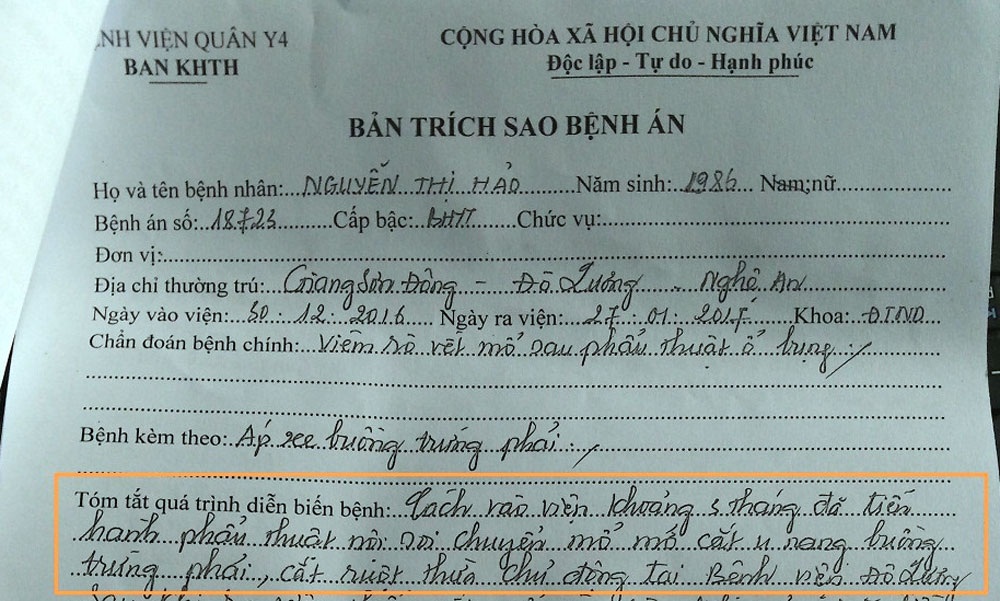 NH VIỆN QUÂN Y4
BAN KHTH
CỘNG HÒA XÃ HỘI CHỦ NGHĨA VIỆT NAM
Độc lập - Tự do - Hạnh phúc
BẢN TRÍCH SAO BỆNH ÁN
Họ và tên bệnh nhân: NGUYỄN THỊ HẢO Năm sinh: 1986 Nam; nữ
Bệnh án số: 18723 Cấp bậc: BHTT Chức vụ:
Đơn vị:
Địa chỉ thường trú: Giang Sơn Đông - Đô Lương - Nghệ An
Ngày vào viện: 30.12.2016 Ngày ra viện: 27.01.2017 Khoa: ĐTND
Chẩn đoán bệnh chính: Viêm rò vết mổ sau phẫu thuật ổ bụng
Bệnh kèm theo: Áp xee buồng trứng phải
Tóm tắt quá trình diễn biến bệnh: Cách vào viện khoảng 5 tháng đã tiến
hành phẫu thuật nội soi chuyển mổ mở cắt u nang buồng
trứng phải, cắt ruột thừa chủ động tại Bệnh viện Đô Lương